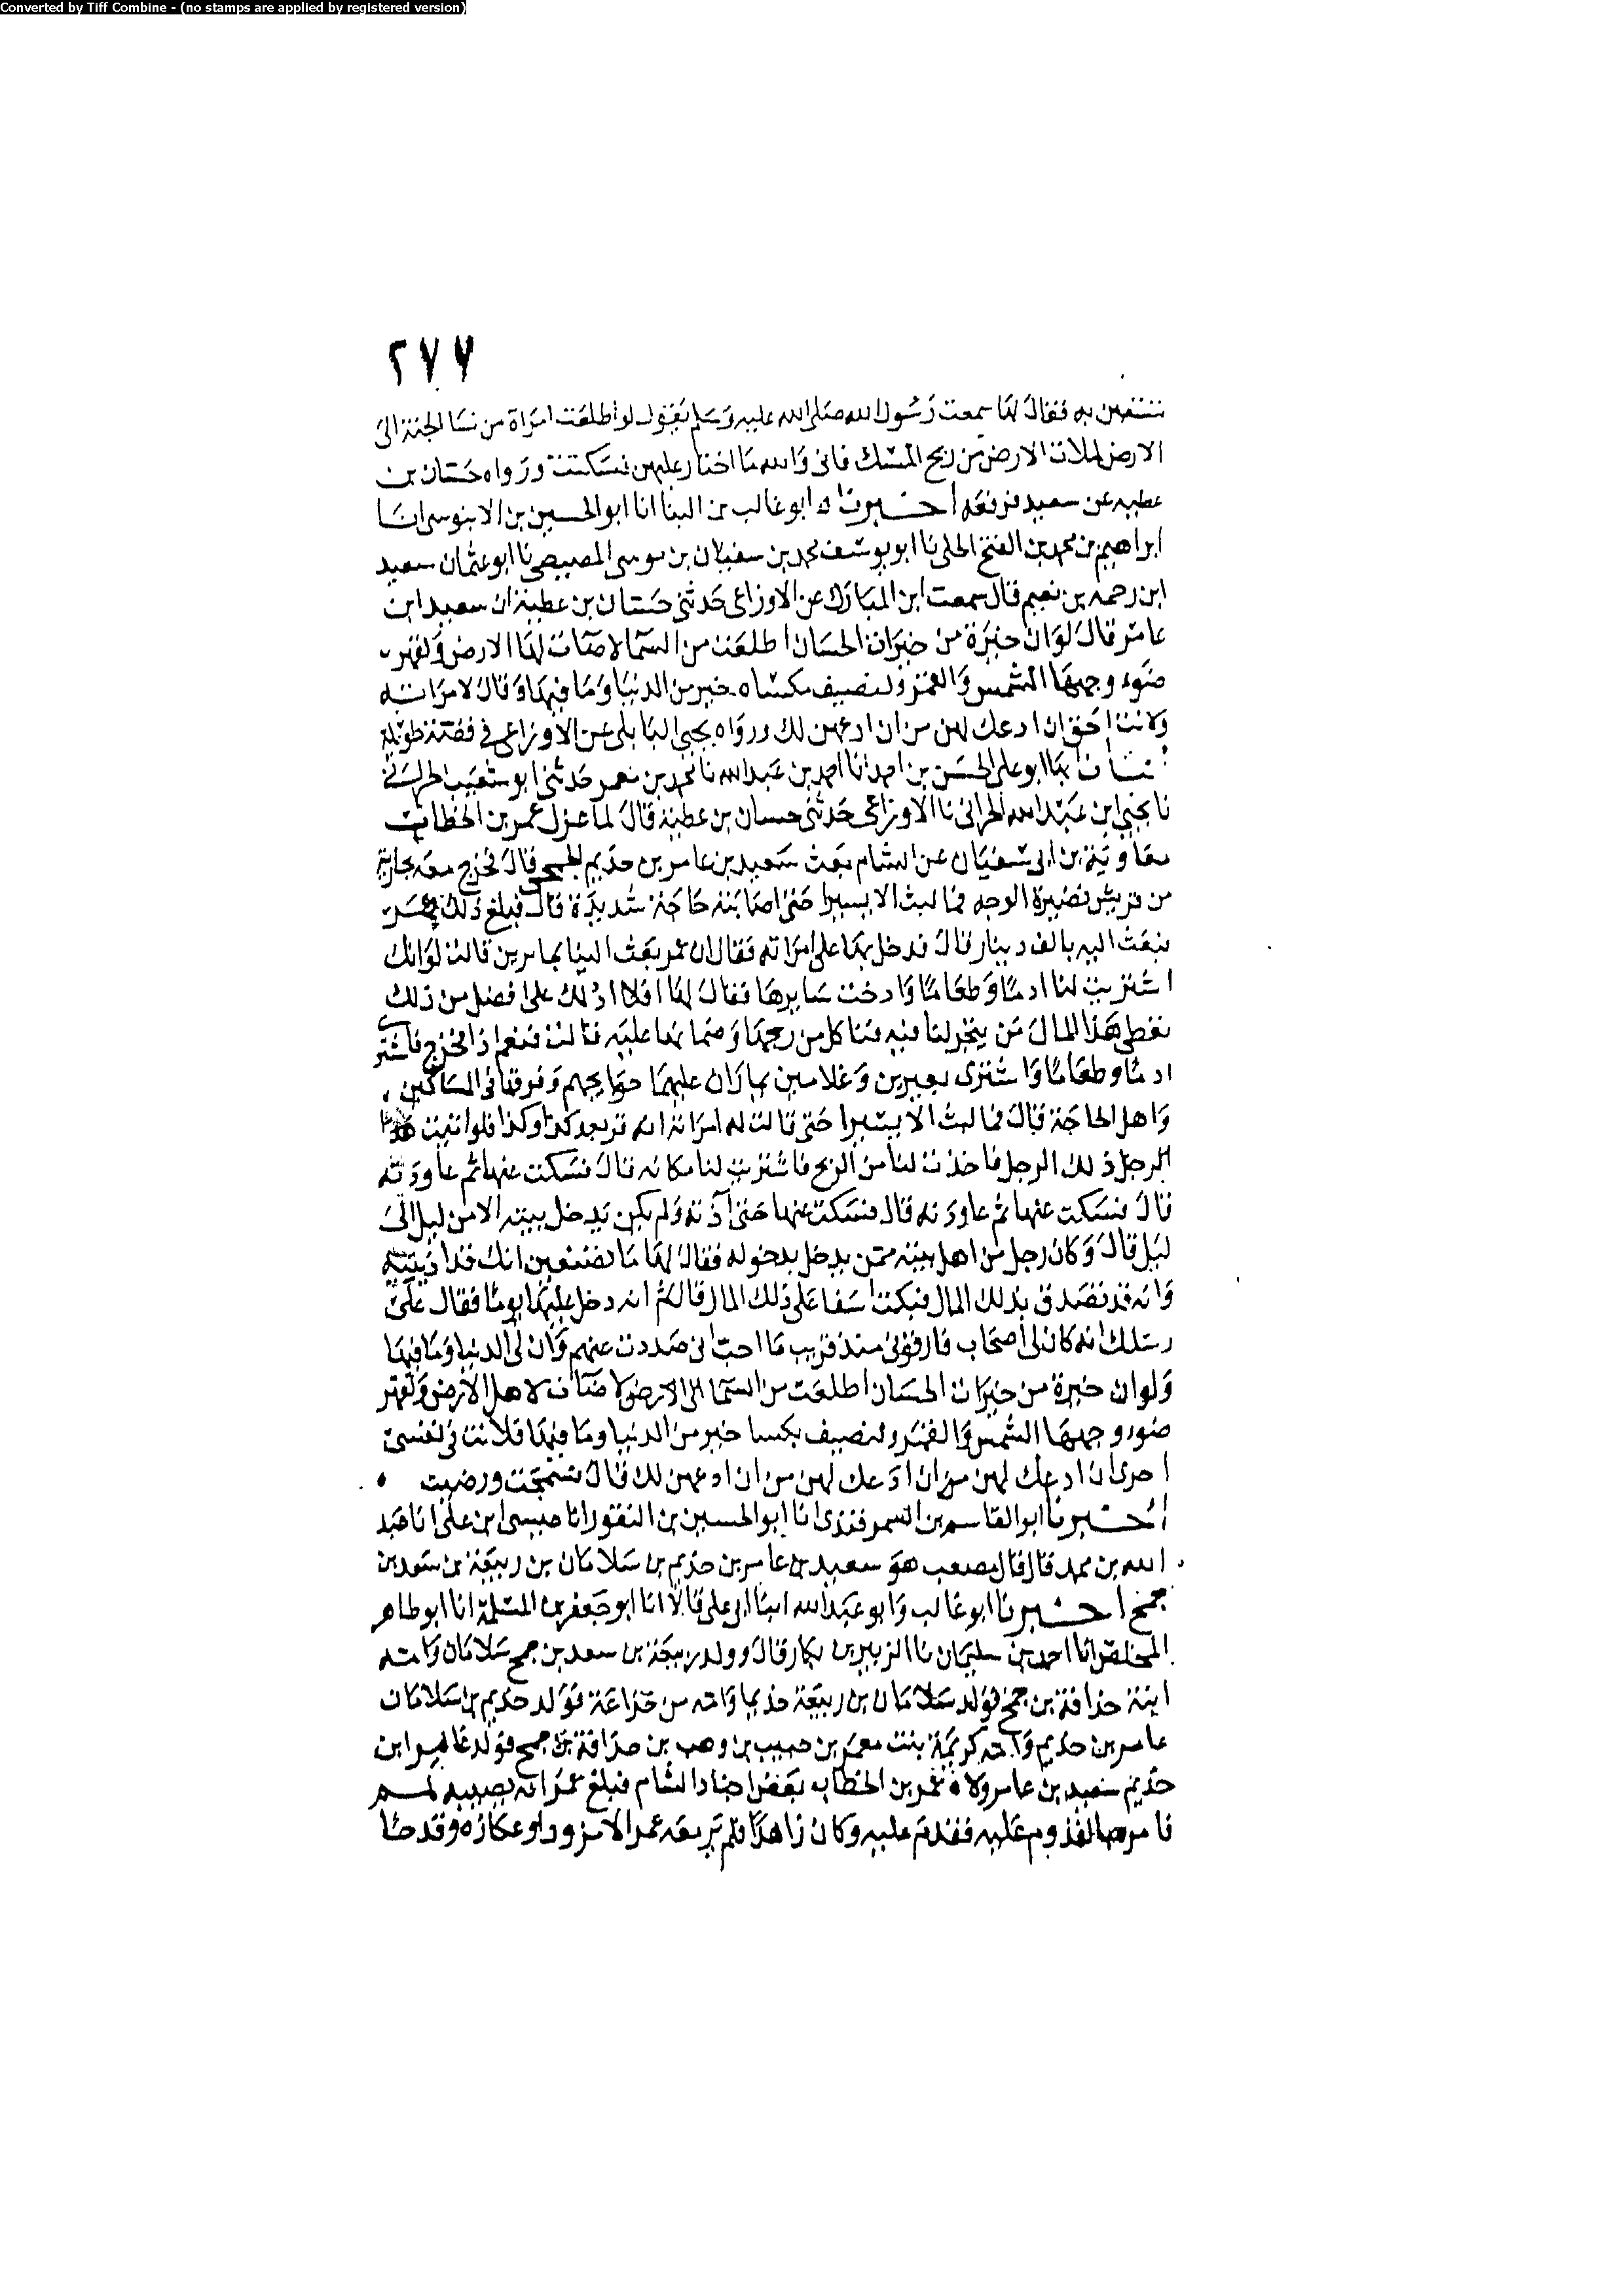 Converted by Tiff Combine - (no stamps are applied by registered version)
٢٧٧
تنتفعين به فقال لها سمعت رسول الله صلى الله عليه وسلم يقول لو اطلعت امراة من نسا الجنة الى
الارض لملات الارض من ريح المسك فانى والله ما اختار عليهن فسكتت ورواه حسان بن
عطيه عن سعيد فرفعه اخبرناه ابو غالب بن البنا انا ابو الحسين بن الابنوسى انا
ابراهيم بن محمد بن الفتح الحلى نا ابو يوسف محمد بن سفيان بن موسى المصيصى نا ابو عثمان سعيد
ابن رحمه بن نعيم قال سمعت ابن المبارك عن الاوزاعى حدثنى حسان بن عطية ان سعيد ابن
عامر قال لو ان خيرة من خيرات الحسان اطلعت من السما لاضات لها الارض ولقهر
ضوء وجهها الشمس والقمر ولنصيف تكساه خير من الدنيا وما فيها وقال لامراته
ولانت احق ان ادعك لهن من ان ادعهن لك ورواه يحيى البابلى عن الاوزاعى فى قصة طويلة
انبانا بها ابو على الحسن بن احمد انا احمد بن عبد الله نا محمد بن معمر حدثنى ابو شعيب الحرانى
نا يحيى ابن عبد الله الحرانى نا الاوزاعى حدثنى حسان بن عطية قال لما عزل عمر بن الخطاب
معاوية بن ابى سفيان عن الشام بعث سعيد بن عامر بن حذيم الجمحى قال فخرج معه بجارية
من قريش نضيرة الوجه فما لبث الا يسيرا حتى اصابته حاجة شديدة قال فبلغ ذلك عمر
فبعث اليه بالف دينار قال فدخل بها على امراته فقال ان عمر بعث الينا بما ترين قالت لو انك
اشتريت لنا ادما وطعاما وادخرت سايرها فقال لها افلا ادلك على افضل من ذلك
نعطى هذا المال من يتجر لنا فيه فناكل من ربحها وضمانها عليه قالت فنعم اذا فخرج فاشترى
ادما وطعاما واشترى بعيرين وغلامين يمتاران عليهما حوايجهم وفرقها فى المساكين
واهل الحاجة قال فما لبث الا يسيرا حتى قالت له امراته انه نفد كذا وكذا فلو اتيت
الرجل ذلك الرجل فاخذت لنا من الربح فاشتريت لنا مكانه قال فسكت عنها ثم عاودته
قال فسكت عنها ثم عاودته قال فسكت عنها حتى اذته ولم يكن يدخل بيته الا من ليل الى
ليل قال وكان رجل من اهل بيته ممن يدخل بدخوله فقال لها ما تصنعين انك قد اذيتيه
وانه قد تصدق بذلك المال فبكت اسفا على ذلك المال قال ثم انه دخل عليها يوما فقال على
رسلك انه كان لى اصحاب فارقونى منذ قريب ما احب انى صددت عنهم وان لى الدنيا وما فيها
ولو ان خيرة من خيرات الحسان اطلعت من السما الى الارض لاضات لاهل الارض ولقهر
ضوء وجهها الشمس والقمر ولنصيف يكسا خير من الدنيا وما فيها فلانت فى نفسى
احرى ان ادعك لهن من ان ادعك لهن من ان ادعهن لك قال فسمحت ورضيت
اخبرنا ابو القاسم بن السمرقندى انا ابو الحسين بن النقور انا عيسى ابن على انا عبد
الله بن محمد قال قال مصعب هو سعيد بن عامر بن حذيم بن سلامان بن ربيعة بن سعد بن
جمح اخبرنا ابو غالب وابو عبد الله ابنا ابى على قالا انا ابو جعفر بن المسلمة انا ابو طاهر
المخلص انا احمد بن سليمان نا الزبير بن بكار قال وولد ربيعة بن سعد بن جمح سلامان وامه
ابنة حذافة بن جمح فولد سلامان بن ربيعة حذيما وامه من خزاعة فولد حذيم بن سلامان
عامر بن حذيم وامه كريمة بنت معمر بن حبيب بن وهب بن حذافة بن جمح فولد عامر ابن
حذيم سعيد بن عامر ولاه عمر بن الخطاب بعض اجناد الشام فبلغ عمر انه يصيبه لمم
فامره بالقدوم عليه فقدم عليه وكان زاهدا فلم ير معه عمر الا مزودا وعكازه وقدحا